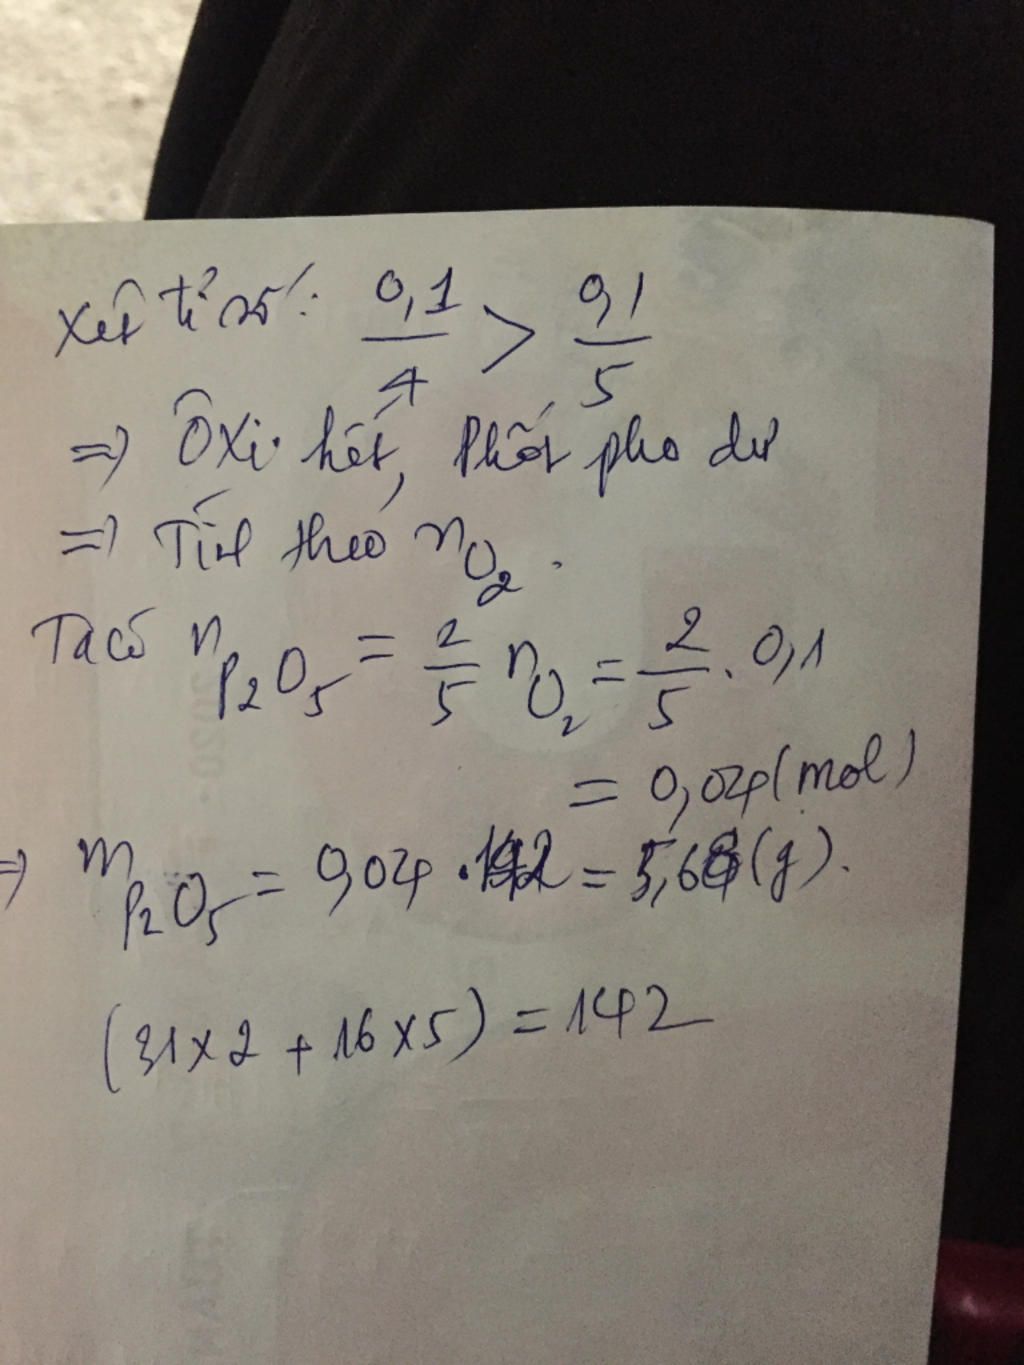 Xét tỉ số: 0,1/4 > 0,1/5
=> Ôxi hết, Phốt pho dư
=> Tính theo n_O₂.
Ta có n_P₂O₅ = 2/5 n_O₂ = 2/5 . 0,1
= 0,04 (mol)
=> m_P₂O₅ = 0,04 . 142 = 5,68 (g).
(31 x 2 + 16 x 5) = 142